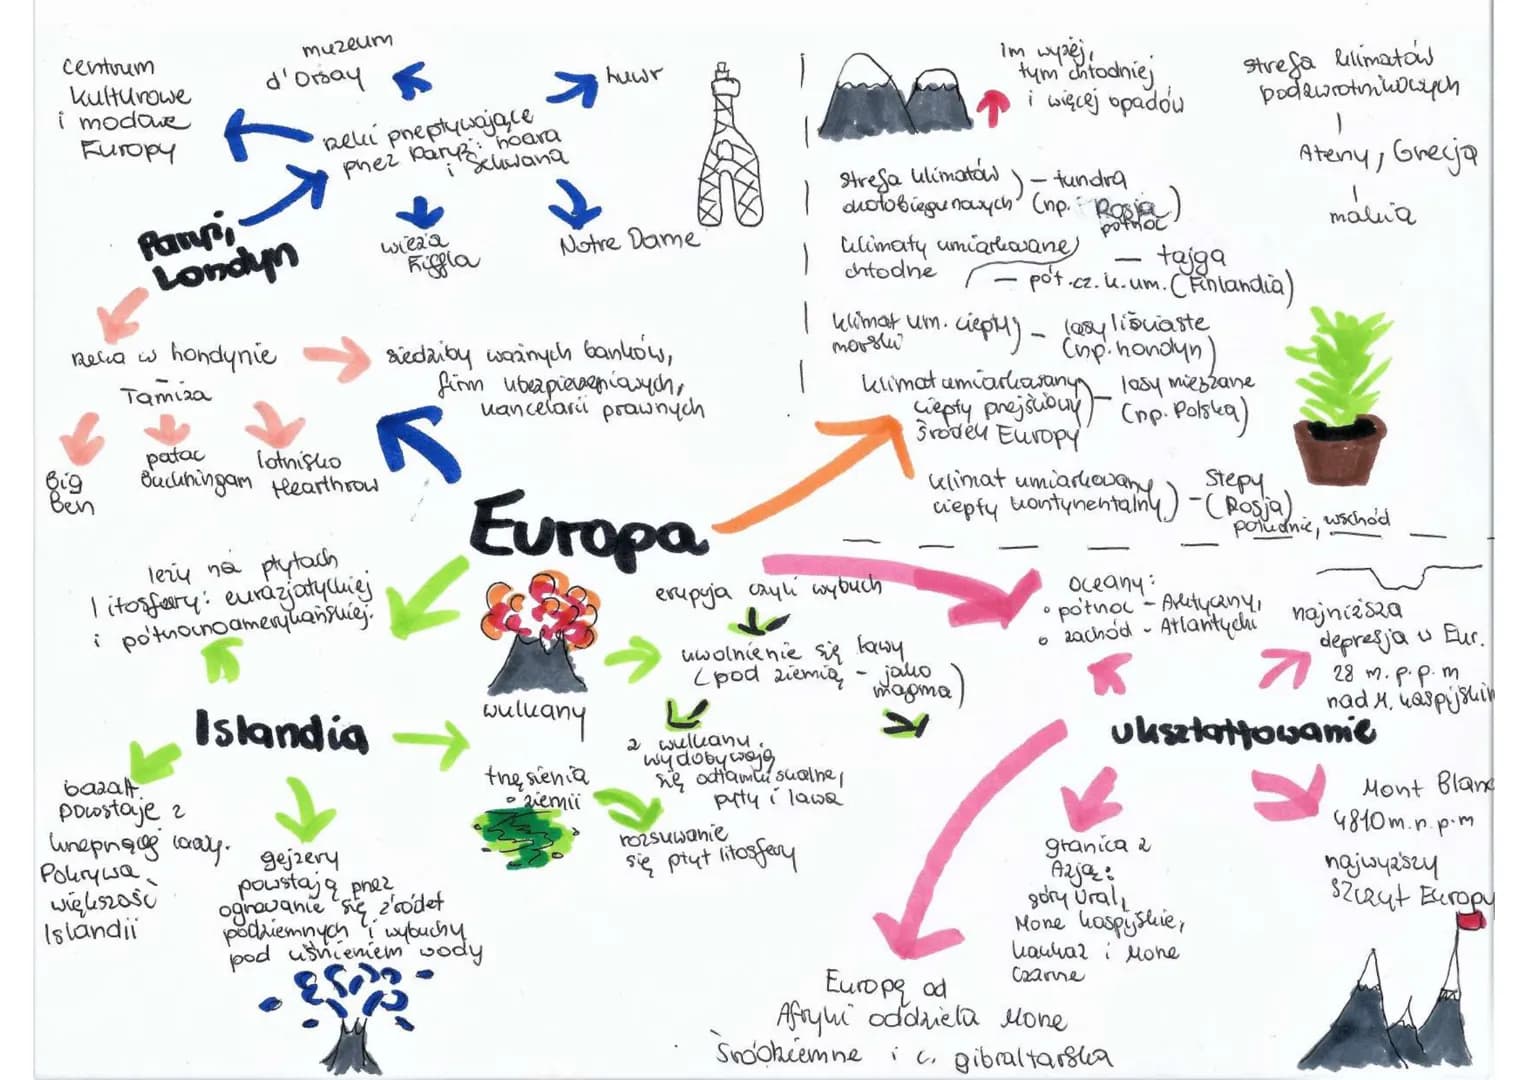 centrum
kulturowe
i modowe
Europy
muzeum
d'Orsay
luwr
rzeki przepływające
przez Paryż: loara
i Sekwana
wieża
Eiffla
Notre Dame
Paryż,
Londyn
rzeka w londynie
Tamiza
siedziby ważnych banków,
firm ubezpieczeniowych,
kancelarii prawnych
Big
Ben
pałac
Buckhingam
lotnisko
Hearthrow
Im wyżej,
tym chłodniej
i więcej opadów
strefa klimatów
podzwrotnikowych
Ateny, Grecja
makia
strefa klimatów
okołobiegunowych
– tundra
(np. Rosja
północ)
klimaty umiarkowane
chłodne
– tajga
– pół.cz.k.um. (Finlandia)
klimat um. ciepły
morski
– lasy liściaste
(np. londyn)
klimat umiarkowany
ciepły przejściowy
środek Europy
– lasy mieszane
(np. Polska)
klimat umiarkowany
ciepły kontynentalny
– Stepy
(Rosja)
południe, wschód
Europa
leży na płytach
litosfery: eurazjatyckiej
i północnoamerykańskiej.
Islandia
bazalt.
powstaje z
Pokrywa
większość
Islandii
gejzery
powstają przez
ogrzewanie się źródeł
podziemnych i wybuchy
pod ciśnieniem wody
wulkany
erupcja czyli wybuch
uwolnienie się lawy
(pod ziemią – jako
magma)
z wulkanu
wydobywają
się odłamki skalne,
pyły i lawa
trzęsienia
ziemii
rozsuwanie
się płyt litosfery
oceany:
• północ – Arktyczny,
• zachód – Atlantycki
najniższa
depresja w Eur.
28 m.p.p.m
nad M. kaspijskim
ukształtowanie
Mont Blanc
4810m.n.p.m
najwyższy
szczyt Europy
granica z
Azją:
góry Ural,
Morze kaspijskie,
kaukaz i Morze
Czarne
Europę od
Afryki oddziela Morze
Śródziemne i c. gibraltarska